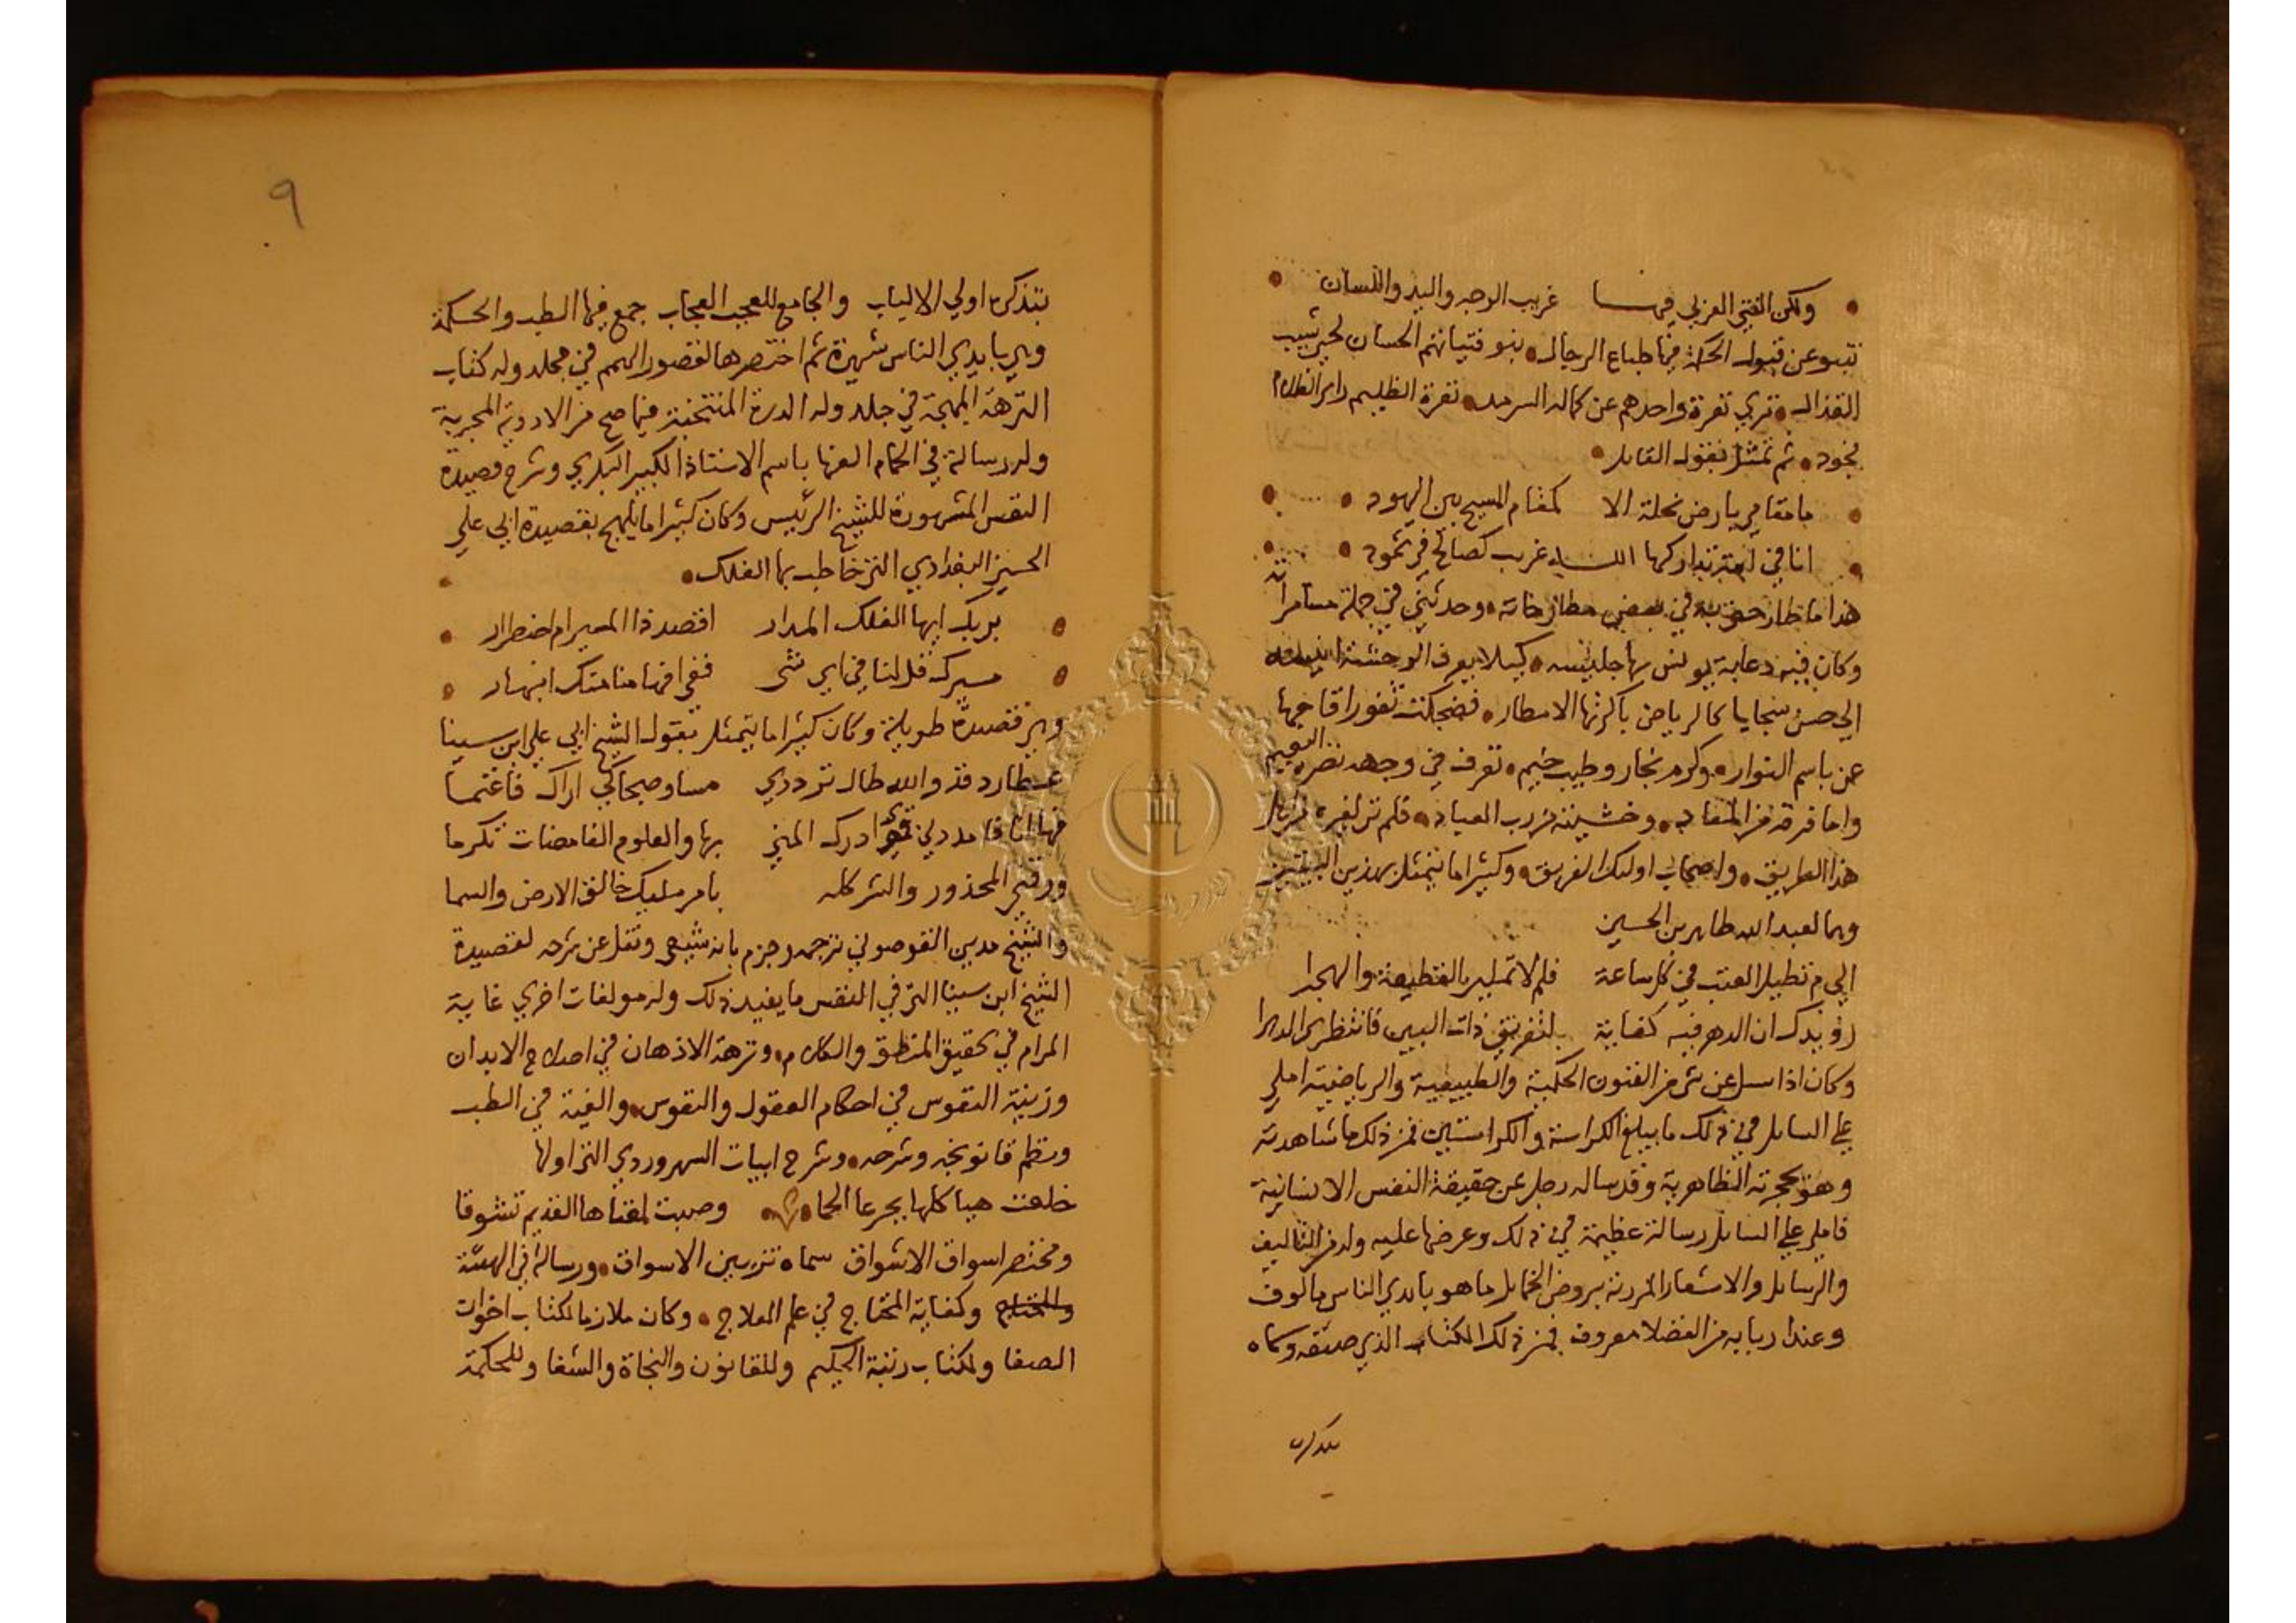 ولكن الفتى العربي فيها غريب الوجه واليد واللسان
تنبو عن قبول الحكمة فيها طباع الرجال نبو فتياتهم الحسان لحين شيب
القذال تري نفرة واحدهم عن كماله السرمد نفرة الظليم راي الظلام
بخود ثم تمثل بقول القايل
ما مقامي بارض نحلة الا كمقام المسيح بين اليهود
انا في امة تداركها الله غريب كصالح في ثمود
هذا ما طارحني به في بعض مطارحاته وحدثني في جملة مسامراته
وكان فيه دعابة يونس بها جليسه كيلا يعرف الوحشة انيسه
الي حسن سجايا كالرياض باكرتها الامطار فضحكت ثغور اقاحيها
عن باسم النوار وكرم نجار وطيب خيم تعرف في وجهه نضرة النعيم
واما فرقه من المعاد وخشيته من رب العباد فلم تر لغيره من اهل
هذا الطريق واصحاب اوليك الفريق وكثيرا ما يتمثل بهذين البيتين
وهما لعبد الله طاهر بن الحسين
الي م تطيل العتب في كل ساعة فلم لا تملين القطيعة والهجرا
رويدك ان الدهر فيه كفاية لتفريق ذات البين فانتظري الدهرا
وكان اذا سيل عن شي من الفنون الحكمية والطبيعية والرياضية املي
علي السايل في ذلك ما يبلغ الكراسة والكراستين فمن ذلك ما شاهدته
وهو بحجرته الظاهرية وقد ساله رجل عن حقيقة النفس الانسانية
فاملي علي السايل رسالة عظيمة في ذلك وعرضها عليه وله من التاليف
والرسايل والاشعار المزرية بروض الخمايل ما هو بايدي الناس مالوف
وعند اربابه من الفضلا معروف فمن ذلك الكتاب الذي صنفه وسماه
بتذكرة
٩
بتذكرة اولي الالباب والجامع للعجب العجاب جمع فيها الطب والحكمة
وهي بايدي الناس شهيرة ثم اختصرها لقصور الهمم في مجلد وله كتاب
النزهة المبهجة في جلد وله الدرة المنتخبة فيما صح من الادوية المجربة
وله رسالة في الحمام الفها باسم الاستاذ الكبير البكري وشرح قصيدة
النفس المشهورة للشيخ الرئيس وكان كثيرا ما يلهج بقصيدة ابي علي
الحسين البغدادي التي خاطب بها الفلك
بربك ايها الفلك المدار اقصد ذا المسير ام اضطرار
مسيرك قل لنا في اي شي ففي افهامنا منك انبهار
وهي قصيدة طويلة وكان كثيرا ما يتمثل بقول الشيخ ابي علي ابن سينا
عطارد قد والله طال ترددي مسا وصبحا كي اراك فاغنما
فها انا فامددني قوي ادرك المني بها والعلوم الغامضات تكرما
ووقني المحذور والشر كله بامر مليك خالق الارض والسما
والشيخ مدين القوصوني ترجمه وجزم بانه شيعي ونقل عن شرحه لقصيدة
الشيخ ابن سينا التي في النفس ما يفيد ذلك وله مولفات اخري غاية
المرام في تحقيق المنطق والكلام ونزهة الاذهان في اصلاح الابدان
وزينة النفوس في احكام العقول والنفوس والفية في الطب
ونظم قانونجه وشرحه وشرح ابيات السهروردي التي اولها
خلعت هياكلها بجرعا الحما وصبت لمغناها القديم تشوقا
ومختصر اسواق الاشواق سماه تزيين الاسواق ورسالة في الهيئة
وكفاية المحتاج في علم العلاج وكان ملازما لكتاب اخوان
الصفا ولكتاب رتبة الحكيم وللقانون والنجاة والشفا وللحكمة